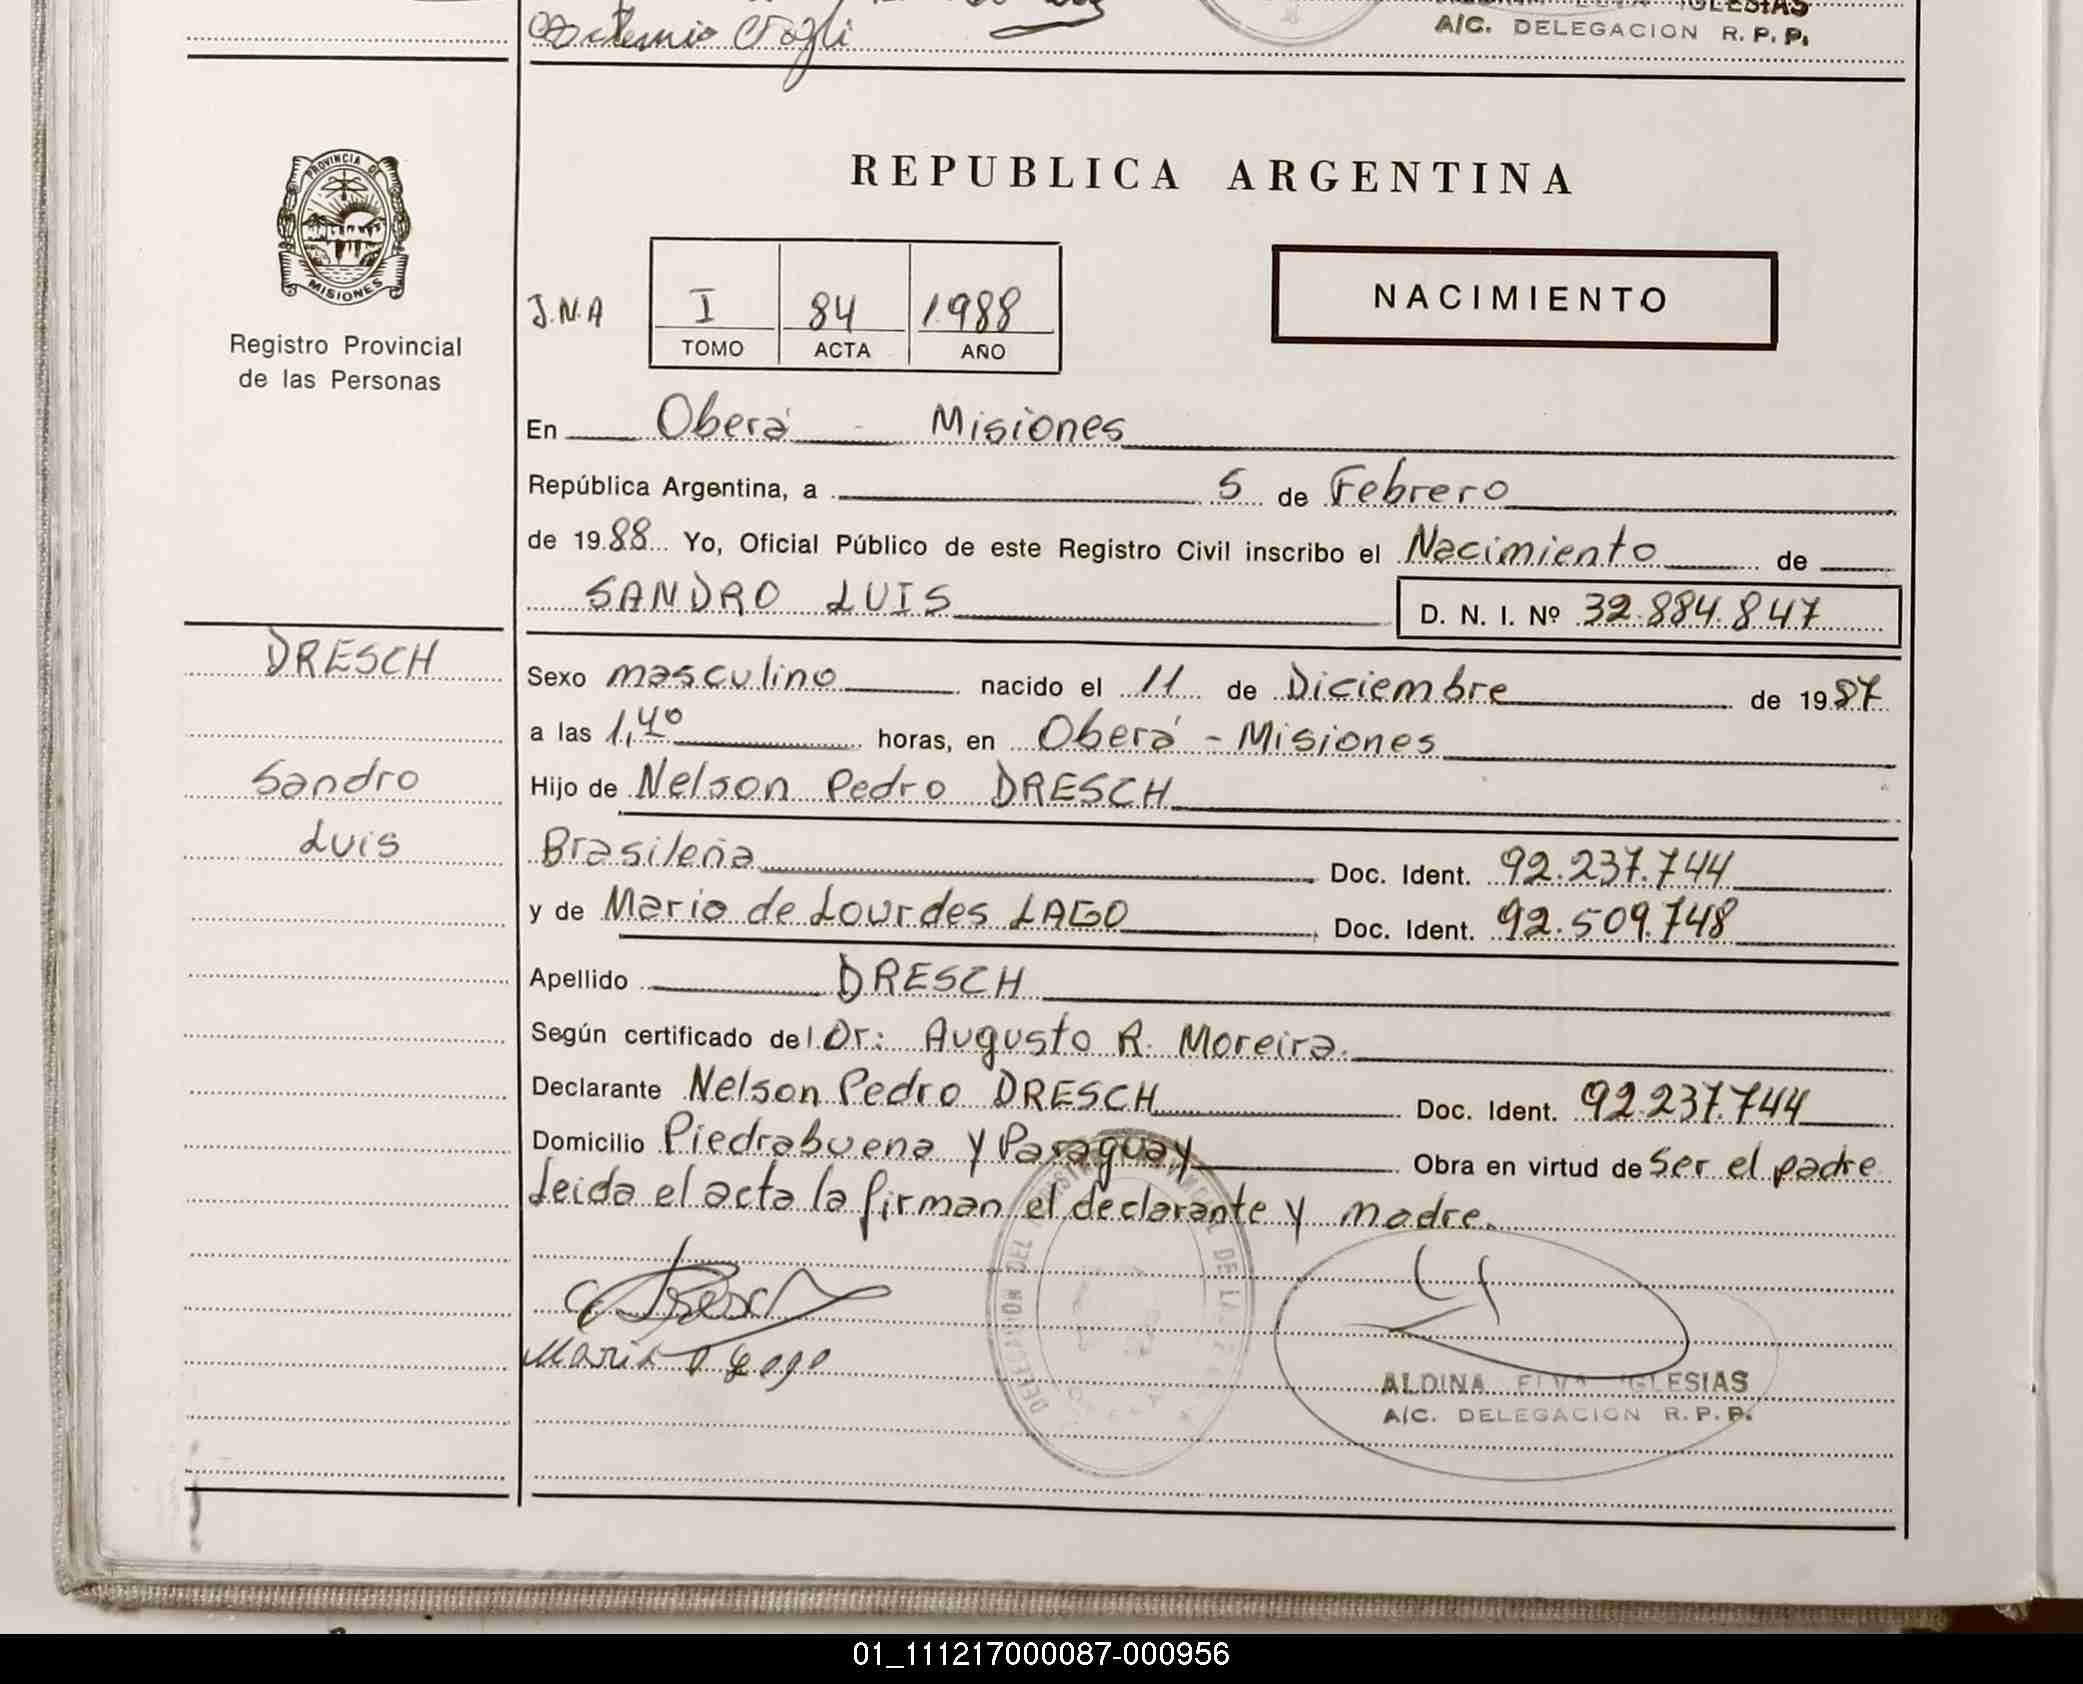 Artemio
IGLESIAS
A/C. DELEGACION R. P. P.
PROVINCIA DE
MISIONES
Registro Provincial
de las Personas
REPUBLICA ARGENTINA
J.N.A
I
84
1988
TOMO
ACTA
AÑO
NACIMIENTO
En Oberá - Misiones
República Argentina, a 5 de Febrero
de 1988 Yo, Oficial Público de este Registro Civil inscribo el Nacimiento de
SANDRO LUIS D. N. I. Nº 32.884.847
DRESCH
Sandro
Luis
Sexo masculino nacido el 11 de Diciembre de 1987
a las 1,40 horas, en Oberá - Misiones
Hijo de Nelson Pedro DRESCH
Brasileña Doc. Ident. 92.237.744
y de Maria de Lourdes LAGO Doc. Ident. 92.509.748
Apellido DRESCH
Según certificado del Dr: Augusto R. Moreira.
Declarante Nelson Pedro DRESCH Doc. Ident. 92.237.744
Domicilio Piedrabuena y Paraguay Obra en virtud de ser el padre
Leida el acta la firman el declarante y madre.
Dresch
Maria D Lago
DELEGACION DEL DE LA
ALDINA ELVA IGLESIAS
A/C. DELEGACION R. P. P.
01_111217000087-000956